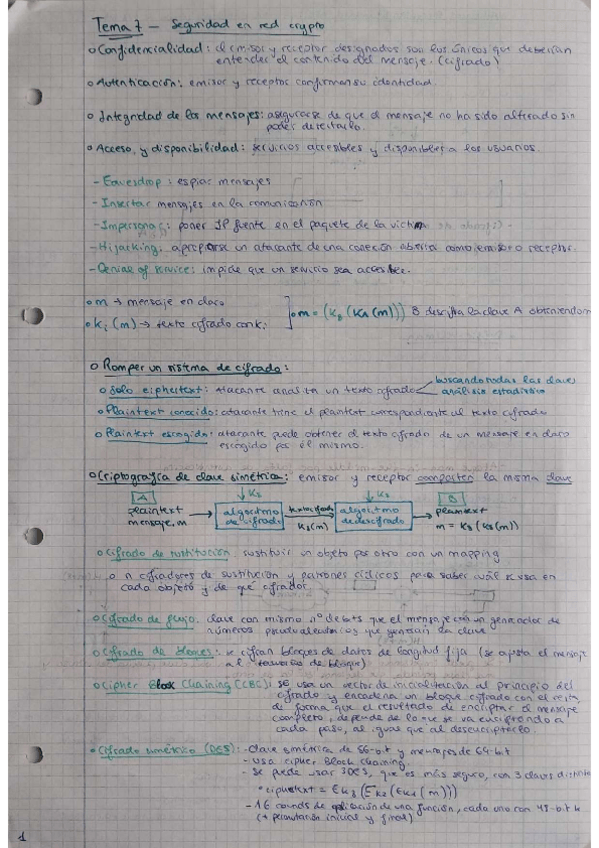 Tema 7 - Seguridad en red crypto
o Confidencialidad: el emisor y receptor designados son los únicos que deberían
entender el contenido del mensaje. (cifrado)
o Autenticación: emisor y receptor confirman su identidad.
o Integridad de los mensajes: asegurarse de que el mensaje no ha sido alterado sin
poder detectarlo.
o Acceso, y disponibilidad: servicios accesibles y disponibles a los usuarios.
- Eavesdrop: espiar mensajes
- Insertar mensajes en la comunicación
- Impersonar: poner IP fuente en el paquete de la victim
- Hijacking: apropiarse un atacante de una conexión abierta como emisor o receptor.
- Denial of service: impide que un servicio sea accesible.
o m → mensaje en claro
o ki (m) → texto cifrado con ki
o m = (KB (KA (m))) B descifra la clave A obteniendo m
o Romper un sistema de cifrado:
o Solo ciphertext: atacante analiza un texto cifrado
buscando todas las claves
análisis estadístico
o Plaintext conocido: atacante tiene el plaintext correspondiente al texto cifrado
o Plaintext escogido: atacante puede obtener el texto cifrado de un mensaje en claro
escogido por él mismo.
o Criptografía de clave simétrica: emisor y receptor comparten la misma clave
A ↓ Ks ↓ Ks B
plaintext mensaje, m → algoritmo de cifrado → texto cifrado Ks(m) → algoritmo de descifrado → plaintext
m = Ks (Ks(m))
o Cifrado de sustitución: sustituir un objeto por otro con un mapping
o n cifradores de sustitución y patrones cíclicos para saber cuál se usa en
cada objeto y de que cifrador.
o Cifrado de flujo: clave con mismo nº de bits que el mensaje con un generador de
números pseudoaleatorios que generan la clave
o Cifrado de bloques: se cifran bloques de datos de longitud fija (se ajusta el mensaje
al tamaño de bloque)
o Cipher Block Chaining (CBC): se usa un vector de inicialización al principio del
cifrado y encadena un bloque cifrado con el resto,
de forma que el resultado de encriptar el mensaje
completo, depende de lo que se va encriptando a
cada paso, al igual que al desencriptarlo.
o Cifrado simétrico (DES): - Clave simétrica de 56-bit y mensajes de 64-bit
- Usa cipher Block Chaining.
- Se puede usar 3DES, que es más seguro, con 3 claves distintas
· ciphertext = EK3 (EK2 (EK1 (m)))
- 16 rounds de aplicación de una función, cada uno con 48-bit k
(+ permutación inicial y final)
1